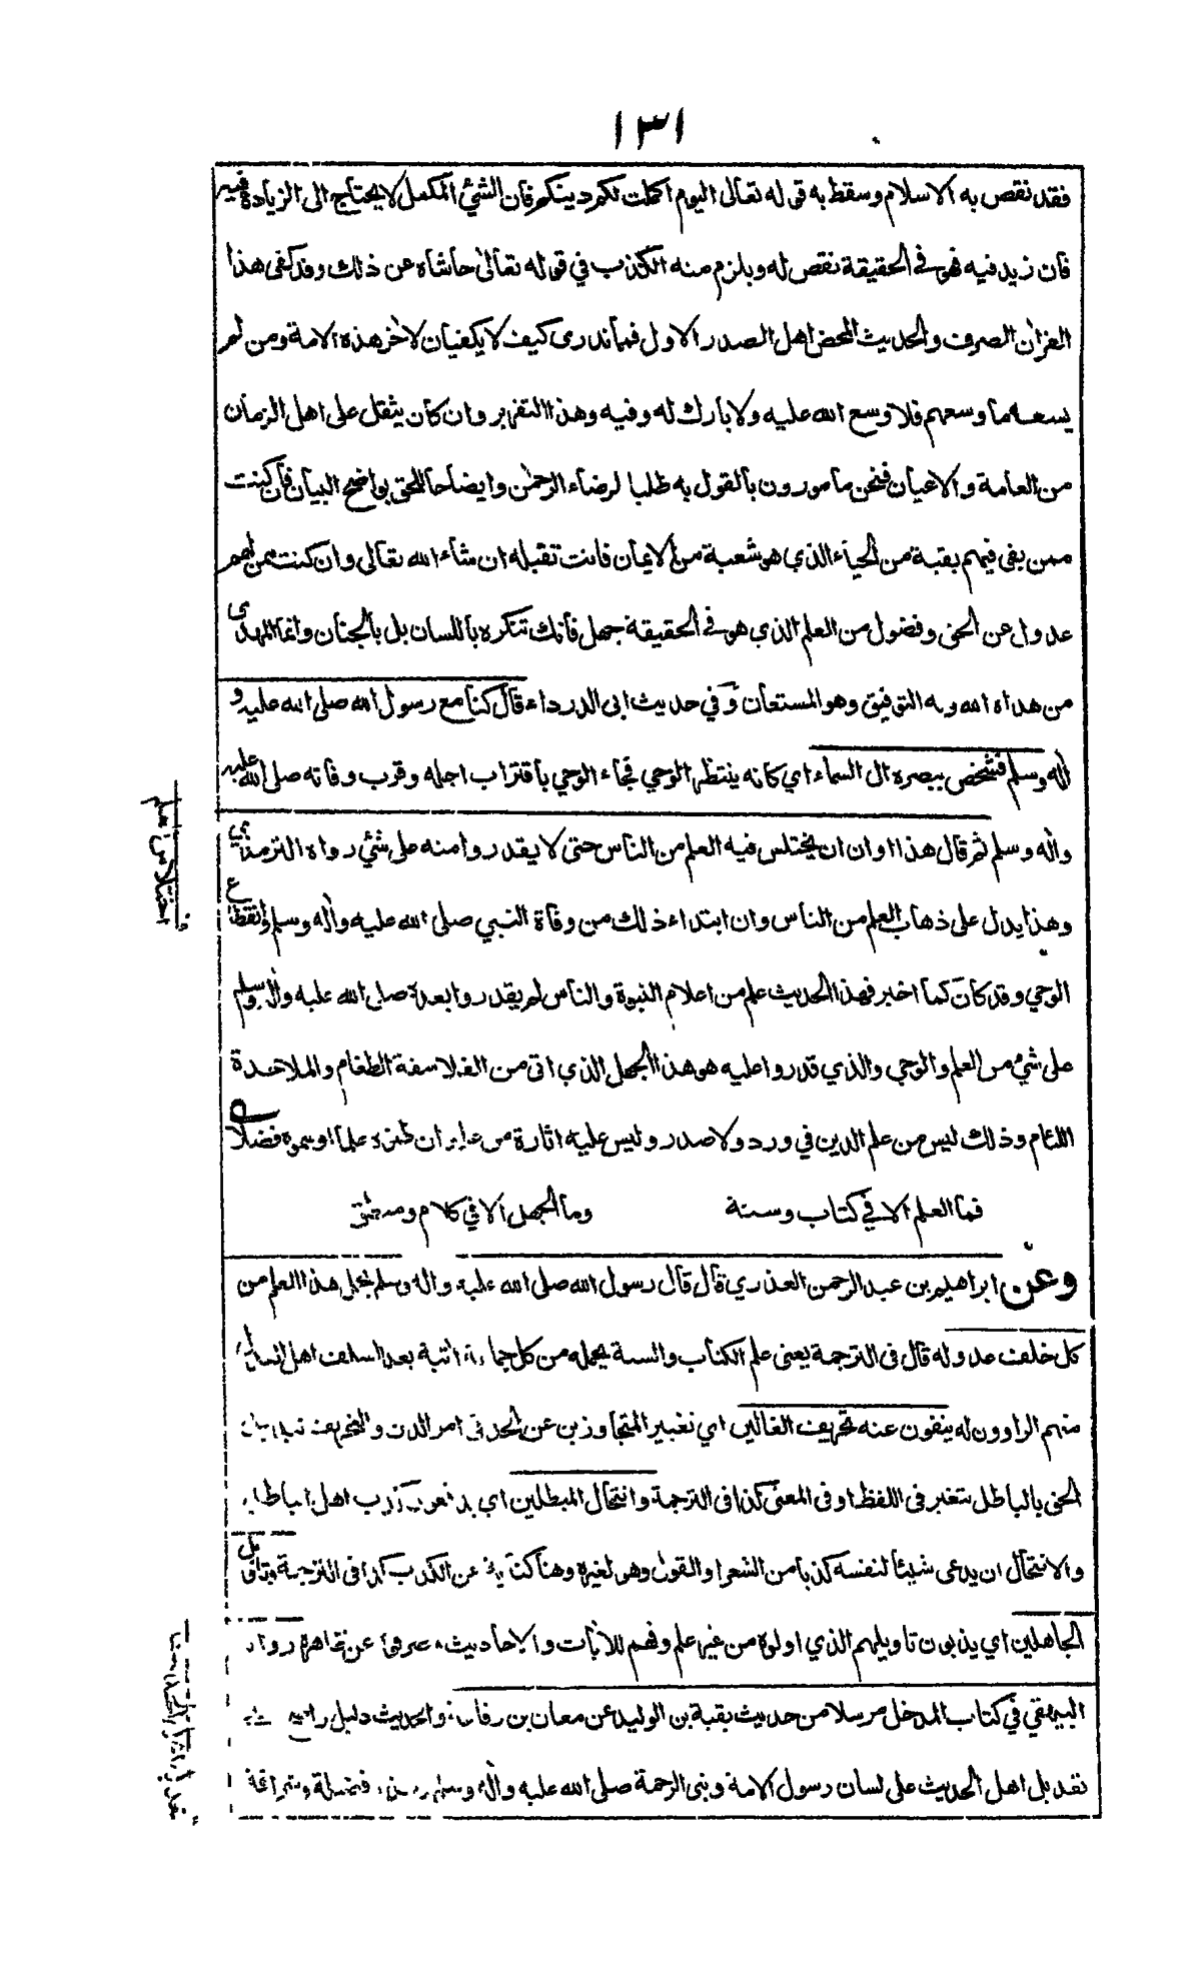 ١٣١
فقد نقص به الاسلام وسقط به قوله تعالى اليوم اكملت لكم دينكم فان الشئ المكمل لا يحتاج الى الزيادة فيه
فان زيد فيه فهو في الحقيقة نقص له ويلزم منه الكذب في قوله تعالى حاشاه عن ذلك وقد كفى هذا
القران الصرف والحديث المحض اهل الصدر الاول فما ندرى كيف لا يكفيان لآخر هذه الامة ومن لم
يسعه ما وسعهم فلا وسع الله عليه ولا بارك له وفيه وهذا التقرير وان كان يثقل على اهل الزمان
من العامة والاعيان فنحن مامورون بالقول به طلبا لرضاء الرحمٰن وايضاحا للحق بواضح البيان فان كنت
ممن بقى فيهم بقية من الحياء الذي هو شعبة من الايمان فانت تقبله ان شاء الله تعالى وان كنت ممن لهم
عدول عن الحق وفضول من العلم الذي هو في الحقيقة جهل فانك تنكره باللسان بل بالجنان وانما المهدي
من هداه الله وبه التوفيق وهو المستعان وفي حديث ابى الدرداء قال كنا مع رسول الله صلى الله عليه و
آله وسلم فشخص ببصره الى السماء اي كانه ينتظر الوحي فجاء الوحي باقتراب اجله وقرب وفاته صلى الله عليه
وآله وسلم ثم قال هذا اوان ان يختلس فيه العلم من الناس حتى لا يقدروا منه على شئ رواه الترمذي
وهذا يدل على ذهاب العلم من الناس وان ابتداء ذلك من وفاة النبي صلى الله عليه وآله وسلم وانقطاع
الوحي وقد كان كما اخبر فهذا الحديث علم من اعلام النبوة والناس لم يقدروا بعده صلى الله عليه وآله وسلم
على شئ من العلم والوحي والذي قدروا عليه هو هذا الجهل الذي اتى من الفلاسفة الطغام والملاحدة
اللئام وذلك ليس من علم الدين في ورد ولا صدر وليس عليه اثارة من علم ان ظنوه علما او سموه فضلا
فما العلم الا في كتاب وسنة وما الجهل الا في كلام ومنطق
وعن ابراهيم بن عبد الرحمن العذري قال قال رسول الله صلى الله عليه وآله وسلم يحمل هذا العلم من
كل خلف عدوله قال فى الترجمة يعنى علم الكتاب والسنة يحمله من كل جماعة اتية بعد السلف اهل العدل
منهم الراوون له ينفون عنه تحريف الغالين اي تغيير المتجاوزين عن الحد فى امر الدين والتحريف تبديل
الحق بالباطل بتغير فى اللفظ او فى المعنى كذا فى الترجمة وانتحال المبطلين اي يدفعون كذب اهل الباطل
والانتحال ان يدعى شيئا لنفسه كذبا من الشعر او القول وهو لغيره وهنا كناية عن الكذب كذا فى الترجمة وتاويل
الجاهلين اي يذبون تاويلهم الذي اولوه من غير علم وفهم للآيات والاحاديث عن ظاهره رواه
البيهقي في كتاب المدخل مرسلا من حديث بقية بن الوليد عن معان بن رفاعة والحديث دليل على
تعديل اهل الحديث على لسان رسول الامة ونبى الرحمة صلى الله عليه وآله وسلم فضيلة وشرافة
ف
اختلاس العلم